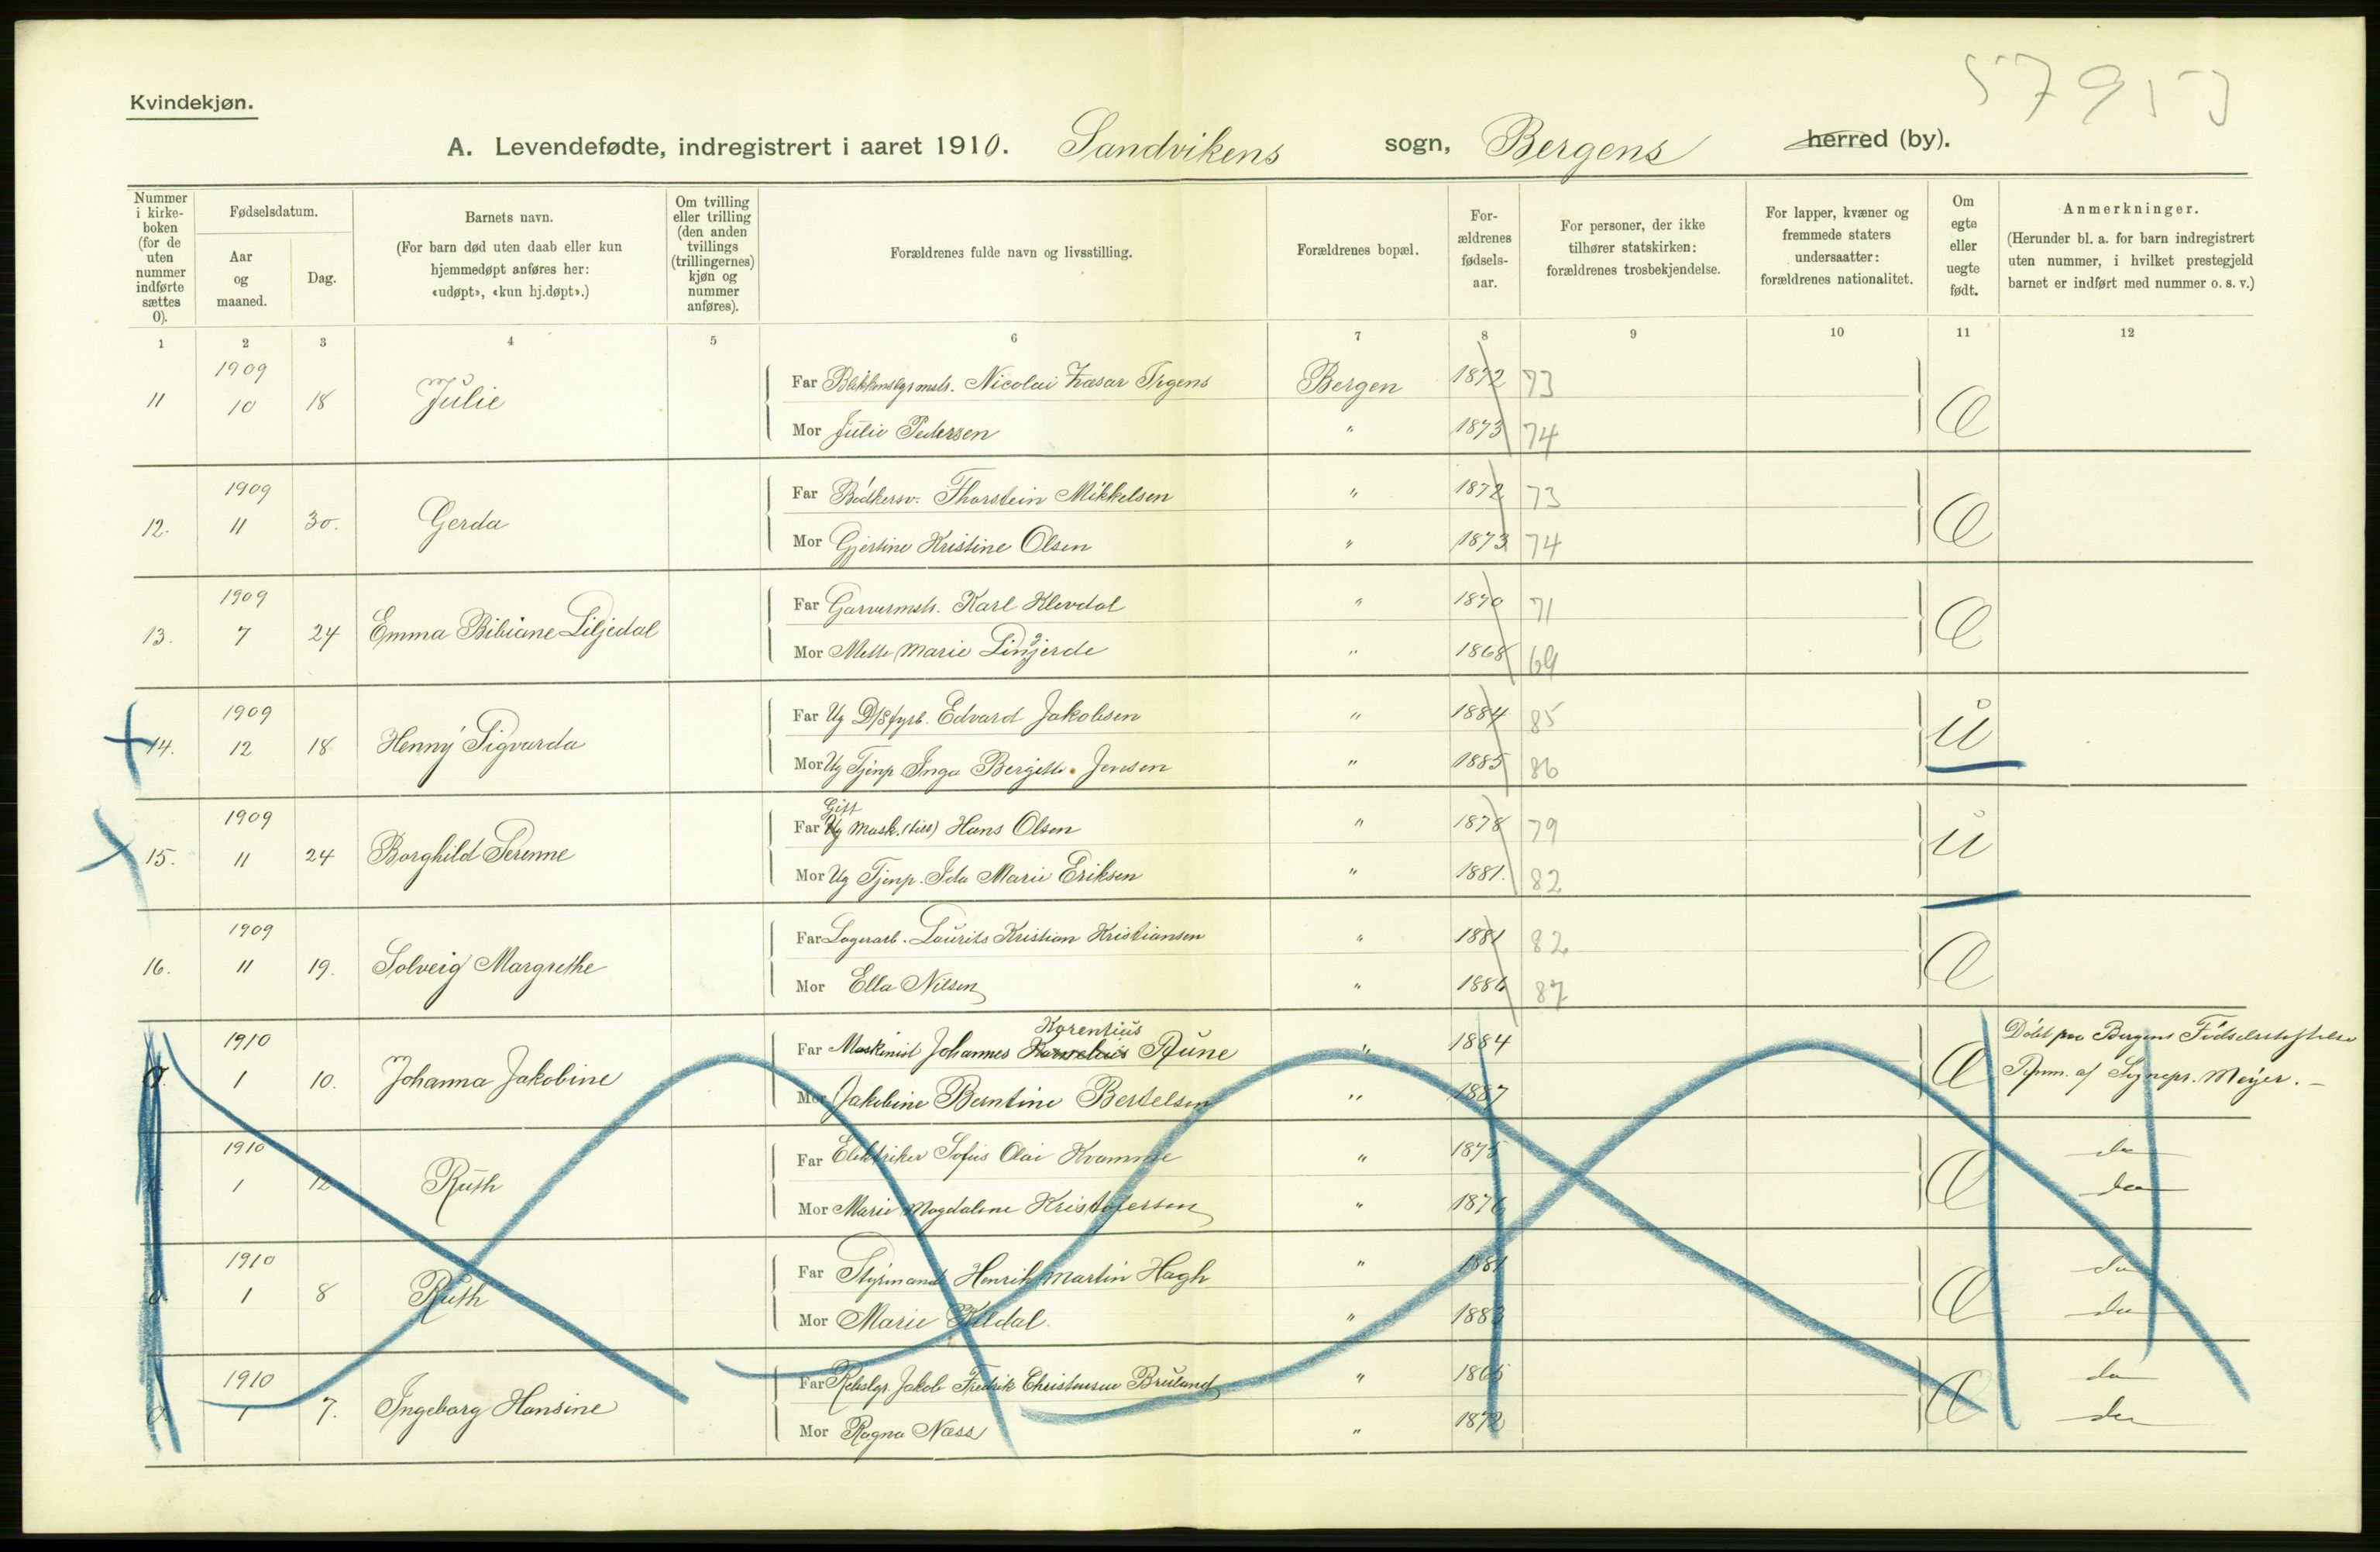 57953
Kvindekjøn.
A. Levendefødte, indregistrert i aaret 1910. Sandvikens sogn, Bergens herred (by).
Nummer i kirke- boken (for de uten nummer indførte sættes 0).
Fødselsdatum.
Aar og maaned.
Dag.
Barnets navn.
(For barn død uten daab eller kun hjemmedøpt anføres her: «udøpt», «kun hj.døpt».)
Om tvilling eller trilling (den anden tvillings (trillingernes) kjøn og nummer anføres).
Forældrenes fulde navn og livsstilling.
Forældrenes bopæl.
For- ældrenes fødsels- aar.
For personer, der ikke tilhører statskirken: forældrenes trosbekjendelse.
For lapper, kvæner og fremmede staters undersaatter: forældrenes nationalitet.
Om egte eller uegte født.
Anmerkninger.
(Herunder bl. a. for barn indregistrert uten nummer, i hvilket prestegjeld barnet er indført med nummer o. s. v.)
1 2 3 4 5 6 7 8 9 10 11 12
1909
11 10 18 Julie
Far Nicolai Bergen 1872 73
Mor Julie Pedersen " 1873 74
Æ
1909
12. 11 30. Gerda
Far Bødkersv. Thorstein Mikkelsen " 1872 73
Mor Gjertine Kristine Olsen " 1873 74
Æ
1909
13. 7 24 Emma Bibiane Liljedal
Far Garvermstr. Karl Klevdal " 1870 71
Mor Mette Marie " 1868 69
Æ
1909
14. 12 18 Henny Sigvarda
Far Ug D/S fyrb. Edvard Jakobsen " 1884 85
Mor Ug Tjenp Inga Bergitte Jensen " 1885 86
U
1909
15. 11 24 Borghild Perenne
Gift
Far Ug Mask. Hans Olsen " 1878 79
Mor Ug Tjenp. Ida Marie Eriksen " 1881. 82
U
1909
16. 11 19. Solveig Margrethe
Far Lagerarb. Laurits Kristian Kristiansen " 1881 82
Mor Ella Nilsen " 1886 87
Æ
1910
0. 1 10. Johanna Jakobine
Korentius
Far Maskinist Johannes Kornelius Rune " 1884
Mor Jakobine Berntine Bertelsen " 1887
Æ
Døbt paa Bergens Fødselsstiftelse
af Sognepr. Meyer. —
1910
0. 1 12 Ruth
Far Elektriker Sofus Olai Kvamme " 1875
Mor Marie Magdalene Kristofersen " 1876
Æ do
do
1910
0. 1 8 Ruth
Far Styrmand Henrik Martin Hagh " 1881
Mor Marie Kildal. " 1883
Æ do
do
1910
0. 1 7. Ingeborg Hansine
Far Rebslgr. Jakob Fredrik Christensen " 1865
Mor Ragna Næss " 1872
Æ do
do